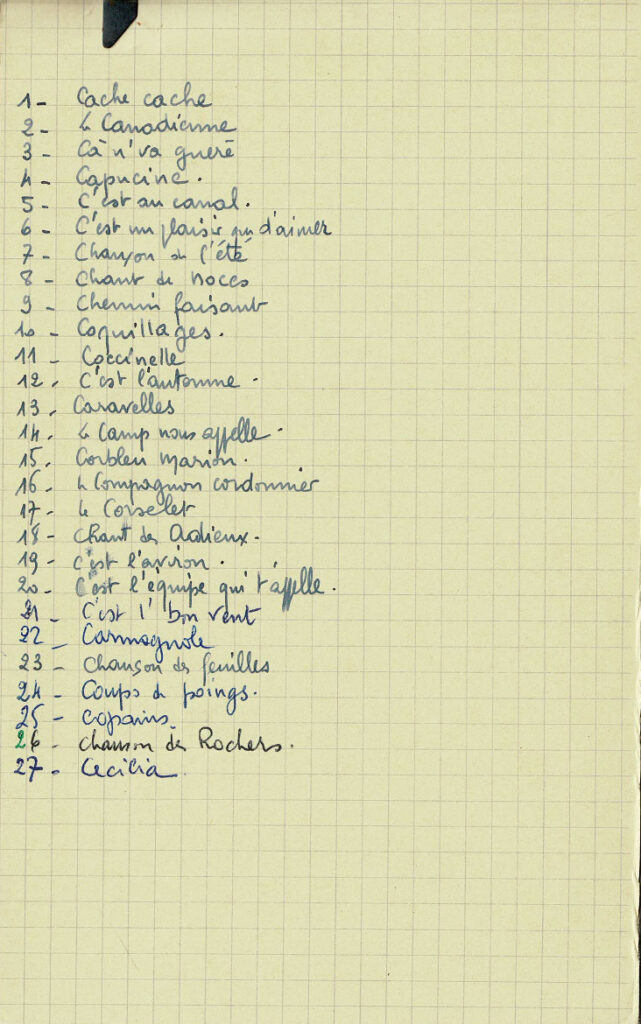 1- Cache cache
2- la Canadienne
3- Cà n'va guerè
4- Capucine.
5- C'est au canal.
6- C'est un plaisir que d'aimer
7- Chanson de l'été
8- Chant de Noces
9- Chemin faisant
10- Coquillages.
11- Coccinelle
12- C'est l'automne.
13- Caravelles
14- le Camp nous appelle.
15- Corbleu Marion.
16- le Compagnon cordonnier
17- le Corselet
18- Chant des Adieux.
19- c'est l'aviron.
20- C'est l'équipe qui t'appelle.
21- C'est l' bon vent
22- Carmagnole
23- Chanson des feuilles
24- Coups de poings.
25- copains.
26- chanson des Rochers.
27- Cecilia.